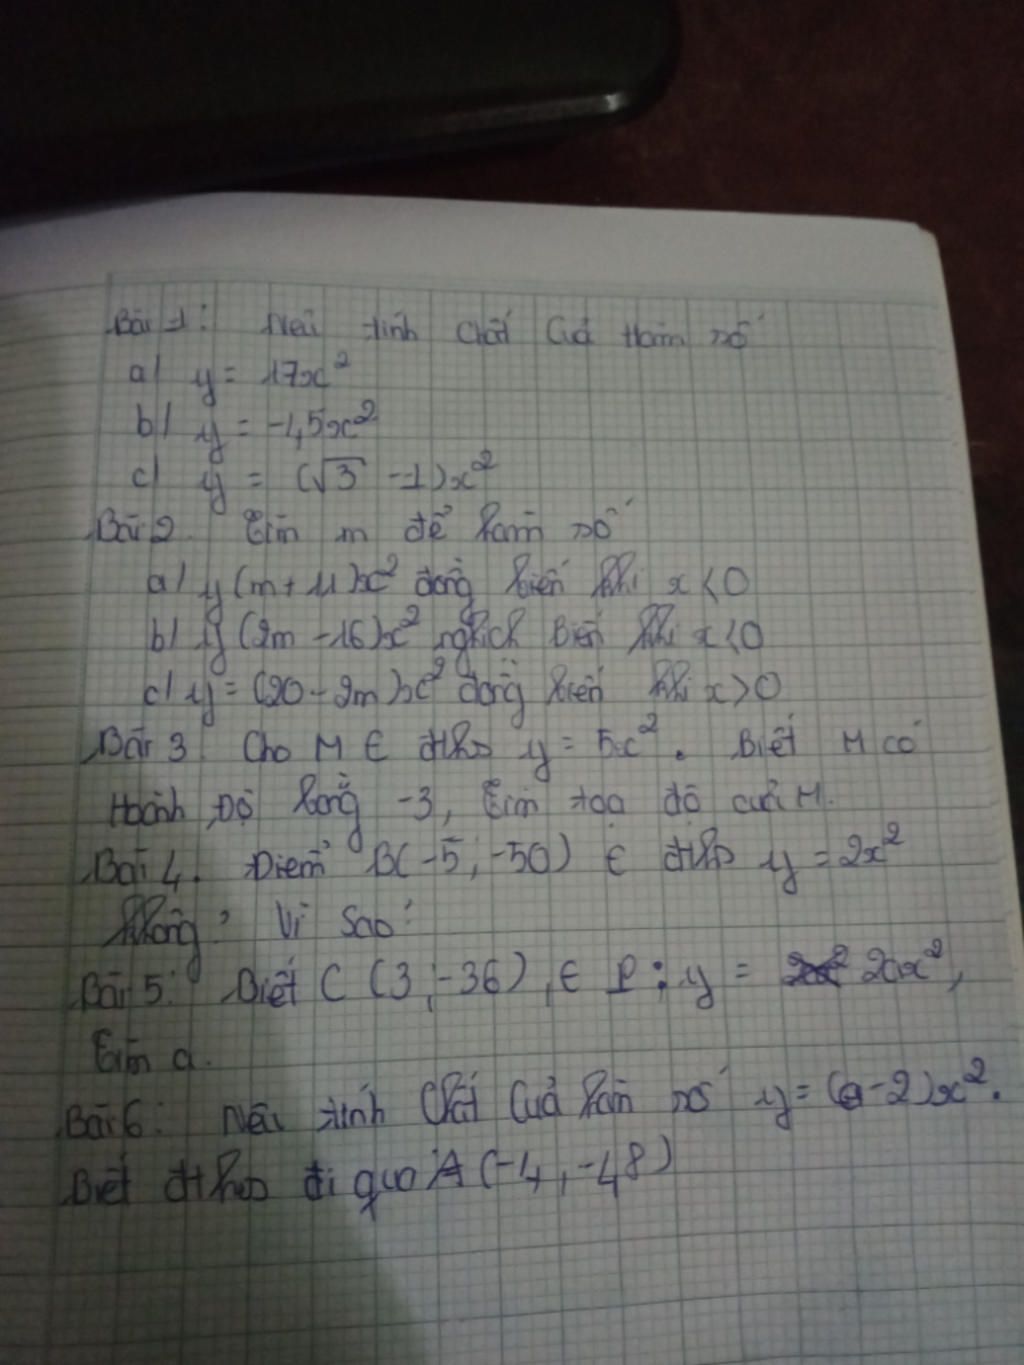 Bài 1: Nêu tính chất của Hàm số
a) y = 17x²
b) y = -45x²
c) y = (√3 - 1)x²
Bài 2. Tìm m để hàm số
a) y(m + 11)x² đồng biến khi x < 0
b) y (2m - 16)x² nghịch Biến khi x < 0
c) y = (20 - 2m)x² đồng biến khi x > 0
Bài 3: Cho M ∈ đths y = 5x². Biết M có
Hoành Độ bằng -3, Tìm tọa độ của M.
Bài 4. Điểm B(-5; -50) ∈ đths y = 2x²
không? Vì Sao?
Bài 5: Biết C (3; -36), ∈ P: y = 2ax²,
Tìm a.
Bài 6: Nêu tính Chất Của hàm số y = (a-2)x².
Biết đths đi qua A (-4, -48)